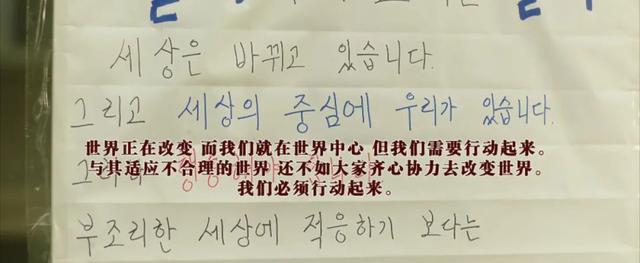 세상은 바뀌고 있습니다.
그리고 세상의 중심에 우리가 있습니다.
世界正在改变 而我们就在世界中心 但我们需要行动起来。
与其适应不合理的世界 还不如大家齐心协力去改变世界。
我们必须行动起来。
부조리한 세상에 적응하기 보다는